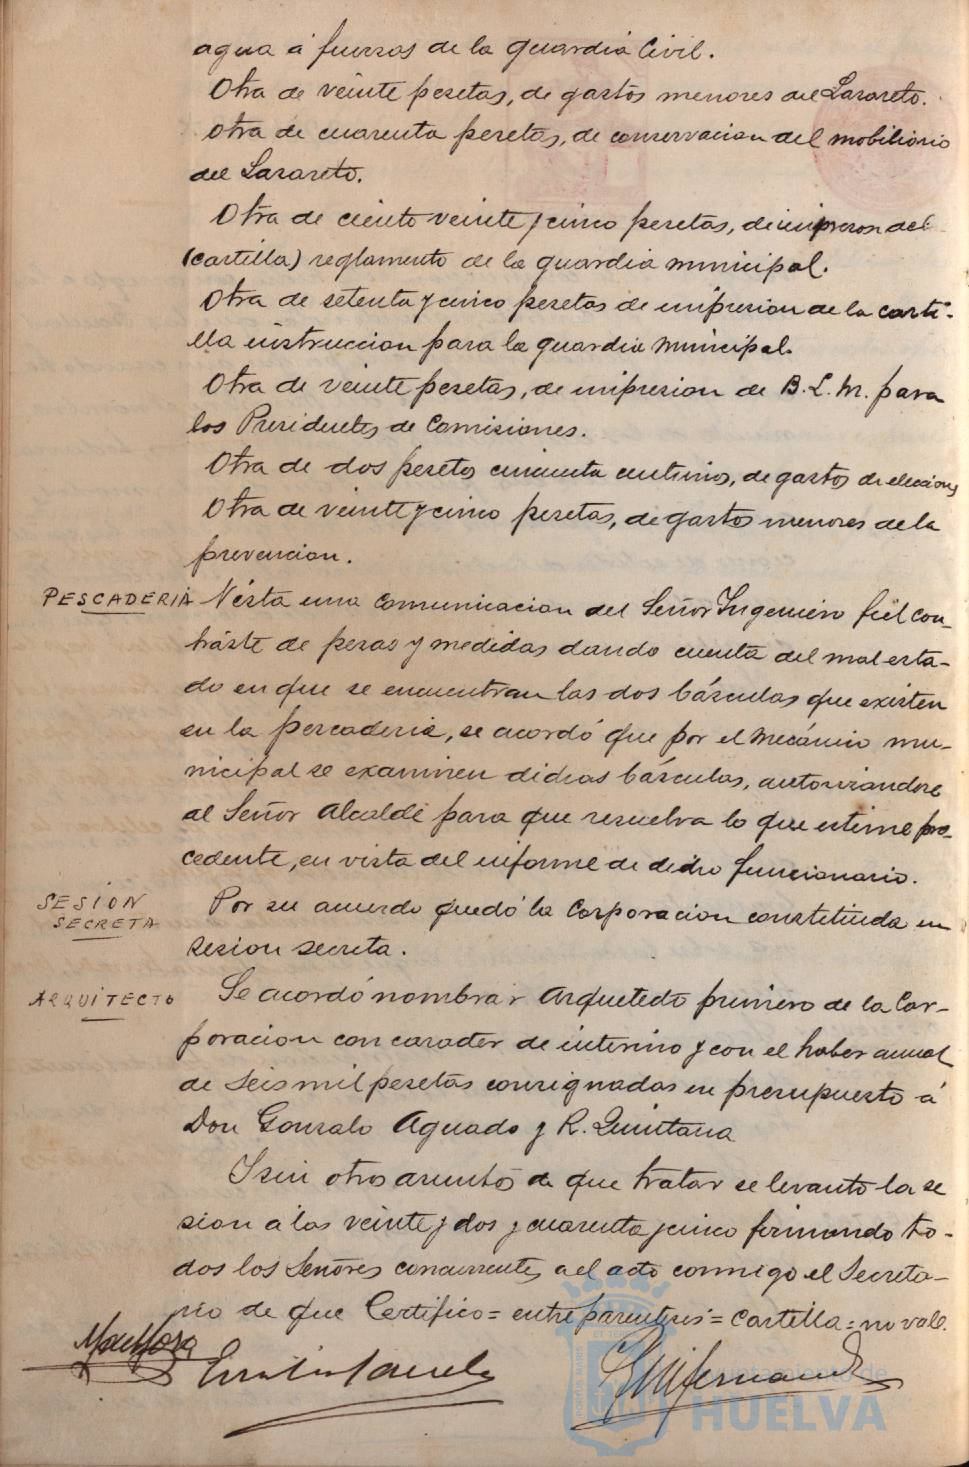 agua á fuerzas de la guardia Civil.
Otra de veinte pesetas, de gastos menores del Lazareto.
Otra de cuarenta pesetas, de conservacion del mobiliario
del Lazareto.
Otra de ciento veinte y cinco pesetas, de impresion del
(cartilla) reglamento de la guardia municipal.
Otra de setenta y cinco pesetas de impresion de la carti-
lla instruccion para la guardia municipal.
Otra de veinte pesetas, de impresion de B. L. M. para
los Presidentes de Comisiones.
Otra de dos pesetas cincuenta centimos, de gastos de elecciones
Otra de veinte y cinco pesetas, de gastos menores de la
prevencion.
PESCADERIA Vista una comunicacion del Señor Ingeniero fiel con-
traste de pesas y medidas dando cuenta del mal esta-
do en que se encuentran las dos básculas que existen
en la pescaderia, se acordó que por el mecánico mu-
nicipal se examinen dichas básculas, autorizandose
al Señor Alcalde para que resuelva lo que estime pro-
cedente, en vista del informe de dicho funcionario.
SESION
SECRETA
Por su acuerdo quedó la Corporacion constituida en
sesion secreta.
ARQUITECTO Se acordó nombrar Arquitecto primero de la Cor-
poracion con caracter de interino y con el haber anual
de seis mil pesetas consignadas en presupuesto á
Don Gonzalo Aguado y R. Quintana
I sin otros asuntos de que tratar se levantó la se
sion á las veinte y dos y cuarenta y cinco firmando to-
dos los Señores concurrentes al acto conmigo el Secreta-
rio de que Certifico = entre parentesis = cartilla = no vale.
Ayuntamiento de
HUELVA